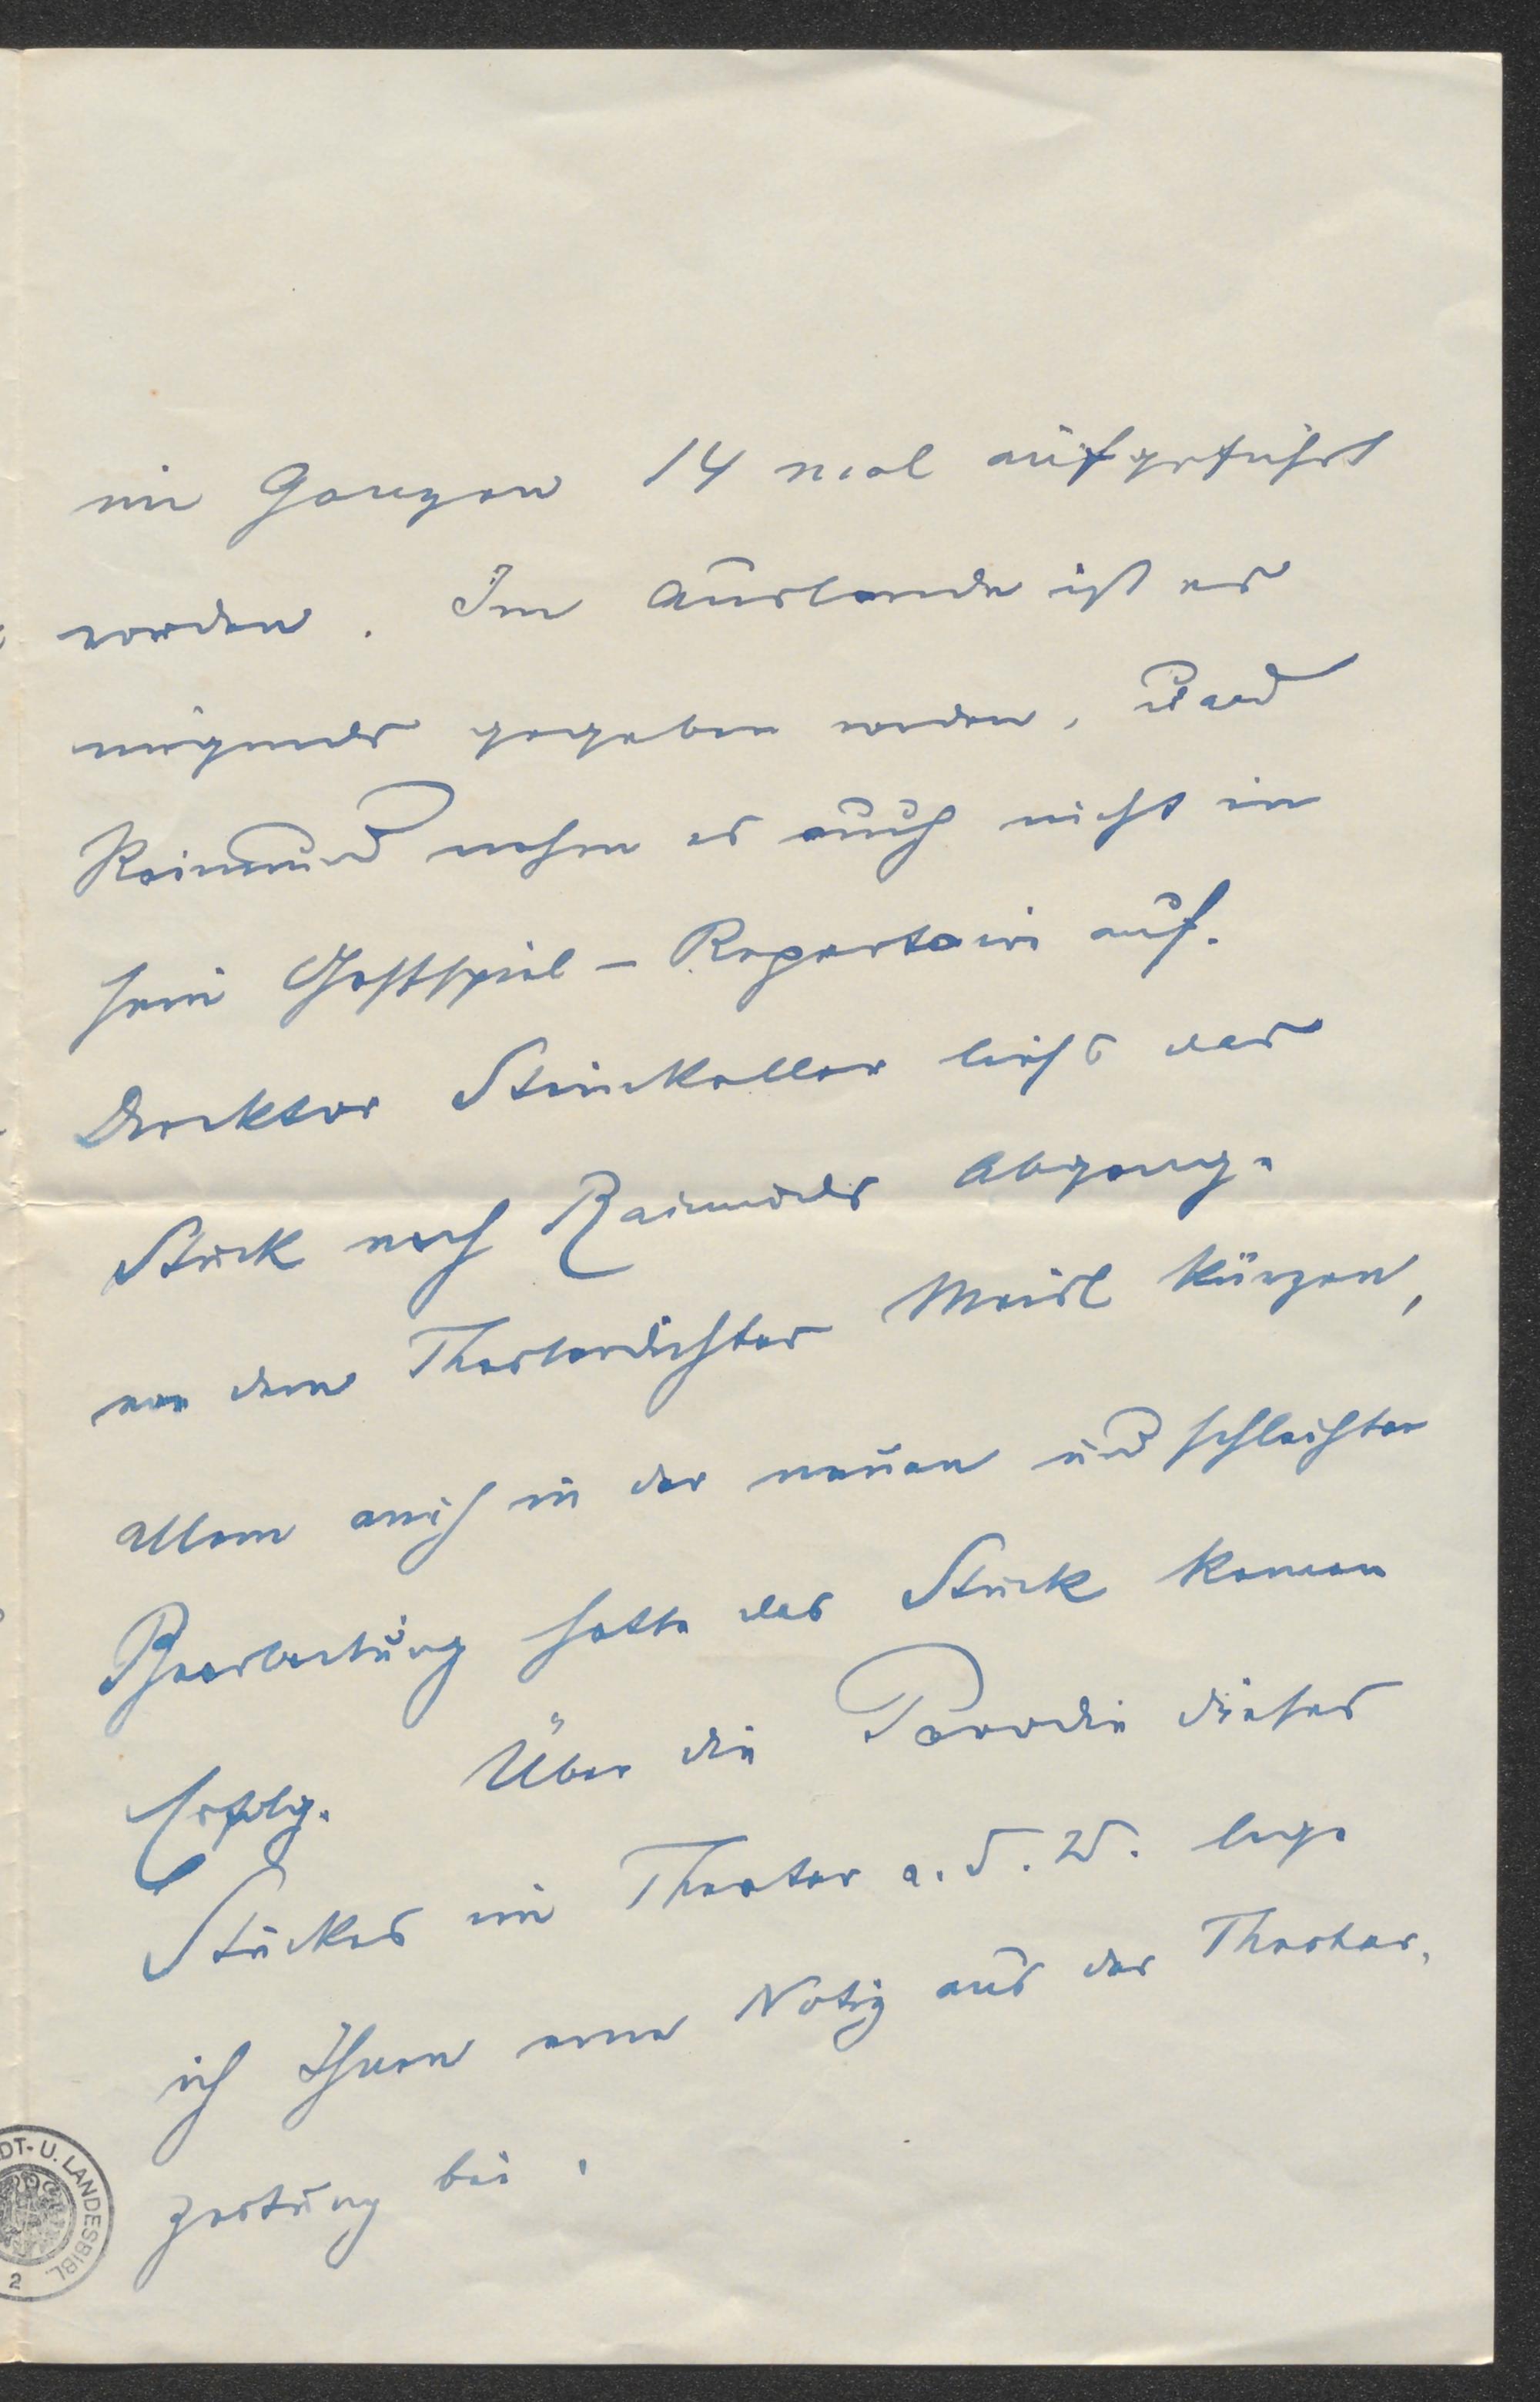 im Ganzen 14 mal aufgeführt
worden. Im Auslande ist es
nirgends gegeben worden, und
Raimund nahm es auch nicht in
sein Gastspiel-Repertoire auf.
Direktor Steinkeller ließ das
Stück nach Raimunds Abgang.
von dem Theaterdichter Meisl kürzen,
allein auch in der neuen und schlechten
Bearbeitung hatte das Stück keinen
Erfolg. Über die Parodie dieses
Stückes im Theater a. d. W. lege
ich Ihnen eine Notiz aus der Theater-
zeitung bei.
DT- U. LANDESBIBL.
2